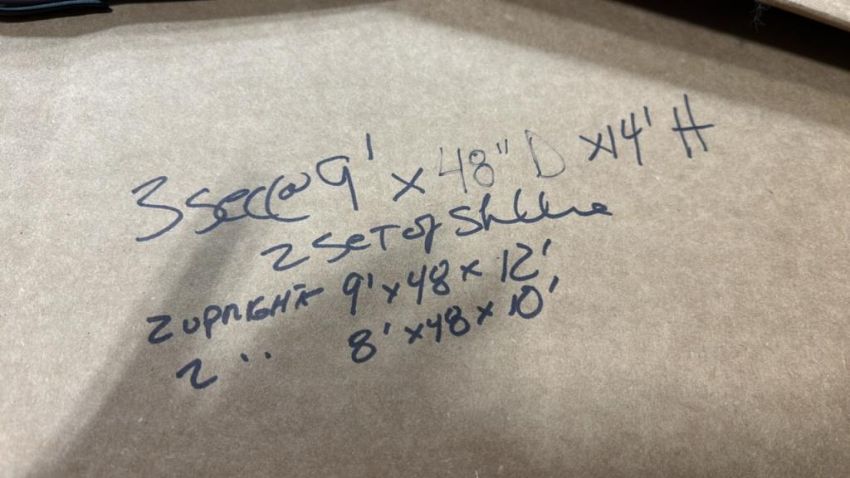 3 sec @ 9' x 48" D x 14' H
2 SET of Shelve
2 UPRIGHT 9' x 48 x 12'
2 " 8' x 48 x 10'